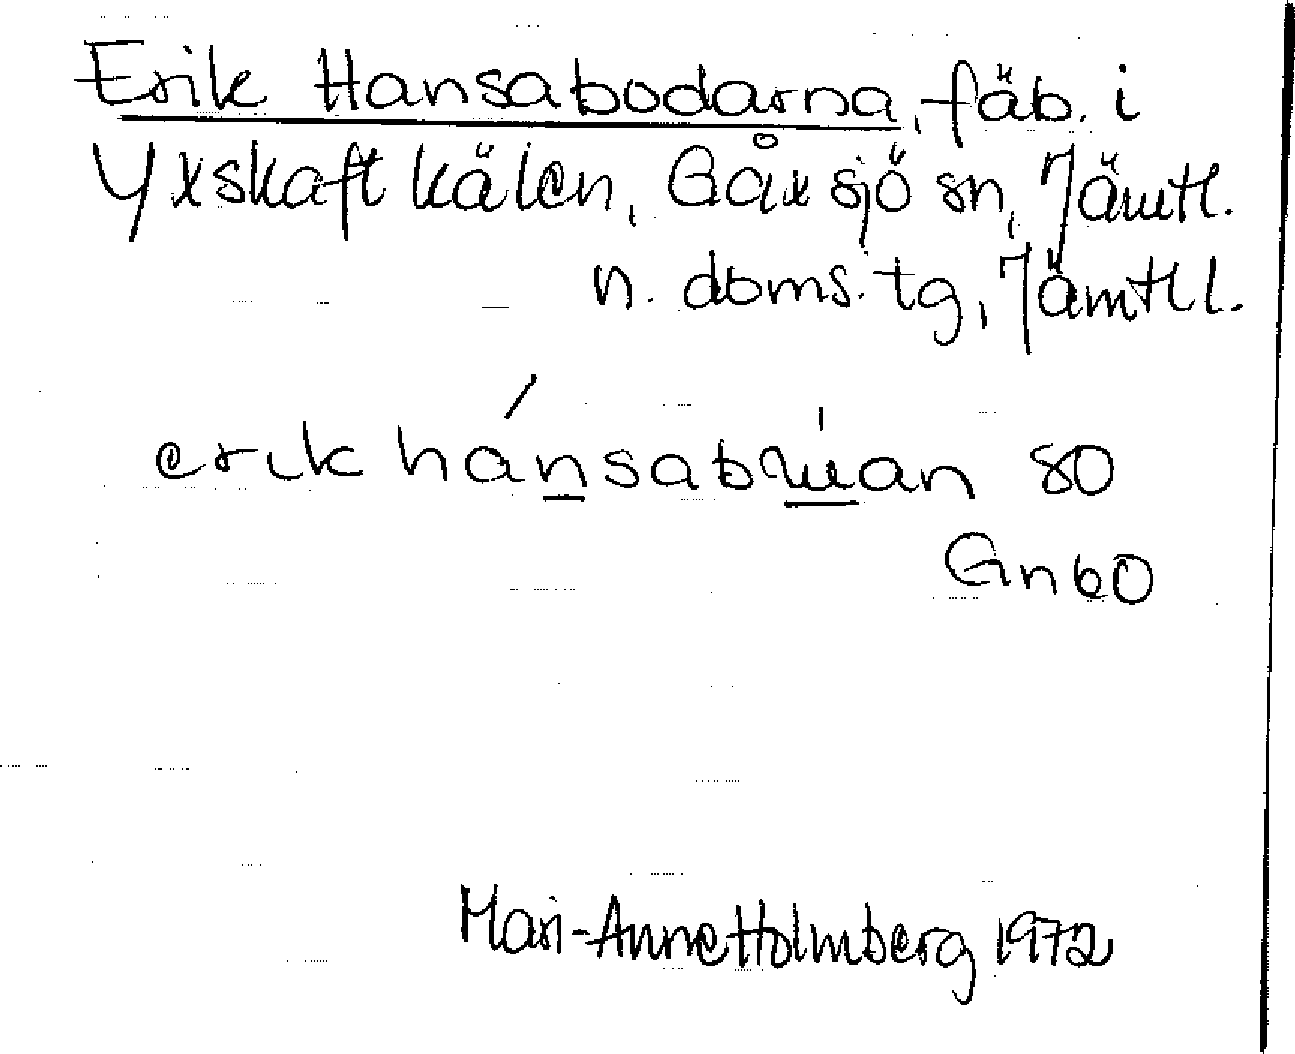 Erik Hansabodarna, fäb. i
Yxskaftkälen, Gåxsjö sn, Jämtl.
n. doms. tg, Jämtl l.
erik hánsab an so
Gn 60
Mari-Anne Holmberg 1972